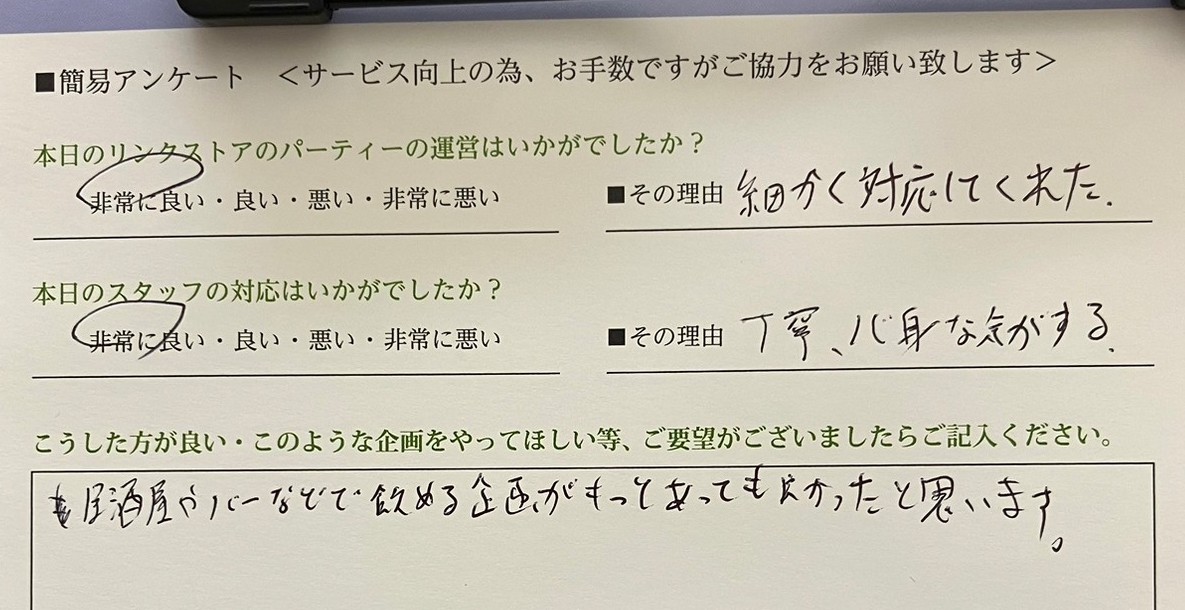 ■簡易アンケート ＜サービス向上の為、お手数ですがご協力をお願い致します＞
本日のリンクストアのパーティーの運営はいかがでしたか？
非常に良い・良い・悪い・非常に悪い ■その理由 細かく対応してくれた.
本日のスタッフの対応はいかがでしたか？
非常に良い・良い・悪い・非常に悪い ■その理由 丁寧、心身な気がする.
こうした方が良い・このような企画をやってほしい等、ご要望がございましたらご記入ください。
居酒屋やバーなどで飲める企画がもっとあっても良かったと思います。